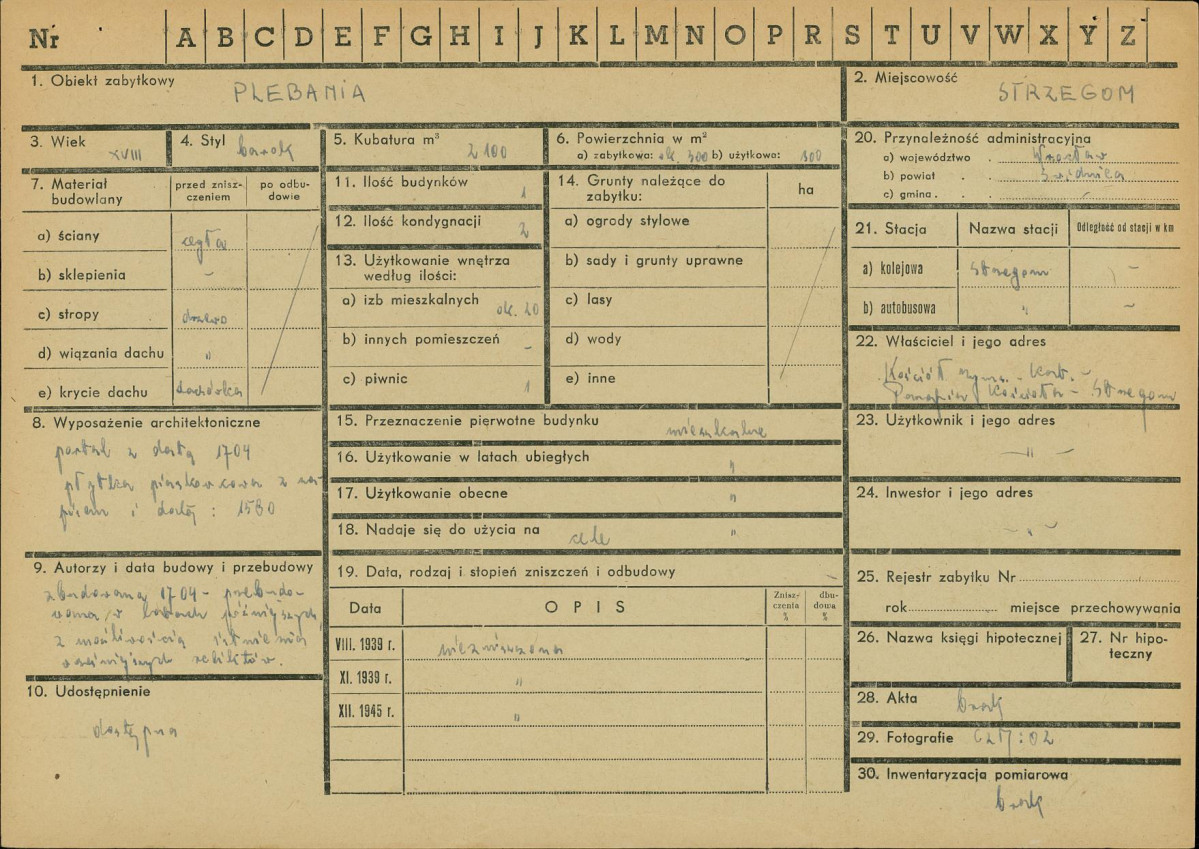 Nr A B C D E F G H I J K L M N O P R S T U V W X Y Z
1. Obiekt zabytkowy PLEBANIA
2. Miejscowość STRZEGOM
3. Wiek XVIII
4. Styl barok
5. Kubatura m³ 2100
6. Powierzchnia w m²
a) zabytkowa: ok. 300 b) użytkowa: 300
7. Materiał budowlany
przed zniszczeniem
po odbudowie
a) ściany cegła
b) sklepienia -
c) stropy drzewo
d) wiązania dachu "
e) krycie dachu dachówka
8. Wyposażenie architektoniczne
portal z datą 1704
płytka piaskowcowa z na-
pisem i datą: 1580
9. Autorzy i data budowy i przebudowy
zbudowana 1704 - przebudo-
wana w latach późniejszych,
z możliwością istnienia
wcześniejszych reliktów.
10. Udostępnienie
dostępna
11. Ilość budynków 1
12. Ilość kondygnacji 2
13. Użytkowanie wnętrza
według ilości:
a) izb mieszkalnych ok. 20
b) innych pomieszczeń -
c) piwnic 1
14. Grunty należące do
zabytku:
ha
a) ogrody stylowe
b) sady i grunty uprawne
c) lasy
d) wody
e) inne
15. Przeznaczenie pierwotne budynku mieszkalne
16. Użytkowanie w latach ubiegłych "
17. Użytkowanie obecne "
18. Nadaje się do użycia na cele "
19. Data, rodzaj i stopień zniszczeń i odbudowy -
Data OPIS Zniszczenia % dbudowa %
VIII. 1939 r. niezniszczona
XI. 1939 r. "
XII. 1945 r. "
20. Przynależność administracyjna
a) województwo . Wrocław
b) powiat . . Świdnica
c) gmina . . . -
21. Stacja Nazwa stacji Odległość od stacji w km
a) kolejowa Strzegom -
b) autobusowa " -
22. Właściciel i jego adres
Kościół rzym. - kat. -
Parafia Kościoła - Strzegom
23. Użytkownik i jego adres
- " -
24. Inwestor i jego adres
- " -
25. Rejestr zabytku Nr
rok miejsce przechowywania
26. Nazwa księgi hipotecznej
27. Nr hipoteczny
28. Akta brak
29. Fotografie
30. Inwentaryzacja pomiarowa
brak